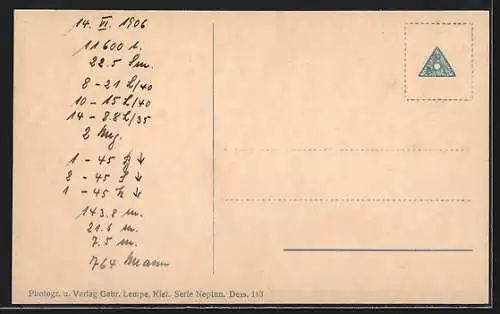 14. VI. 1906
11600 t.
22.5 Sm.
8 - 21 L/40
10 - 15 L/40
14 - 8.8 L/35
2 Mg.
1 - 45 ↓
2 - 45 ↓
1 - 45 h ↓
143.8 m.
21.6 m.
7.5 m.
764 Mann
Photogr. u. Verlag Gebr. Lempe, Kiel. Serie Neptun. Dess. 113